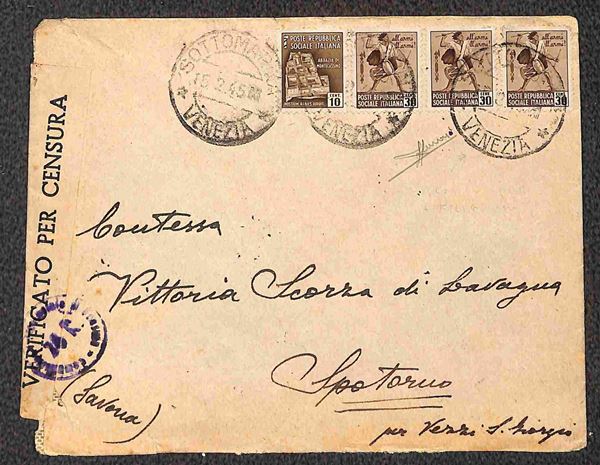 POSTE REPUBBLICA
SOCIALE ITALIANA
ABBAZIA DI
MONTECASSINO
HOSTIUM RABIES DIRUIT
CENT.
10
all'armi
all'armi!
POSTE REPUBBLICA
SOCIALE ITALIANA
CENT.
30
all'armi
all'armi!
POSTE REPUBBLICA
SOCIALE ITALIANA
CENT.
30
all'armi
all'armi!
POSTE REPUBBLICA
SOCIALE ITALIANA
CENT.
30
SOTTOMARINA
VENEZIA
VENEZIA
VENEZIA
VERIFICATO PER CENSURA
Contessa
Vittoria Scorza di Lavagna
Spotorno
(Savona)
per Vezzi S. Giorgio